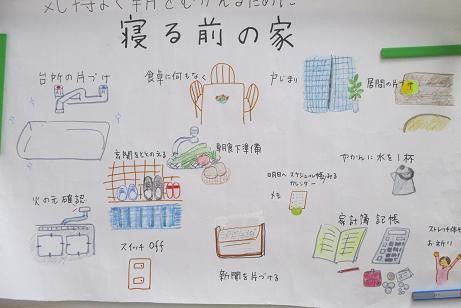 気持よく朝をむかえるために
寝る前の家
台所の片づけ
食卓に何もなく
戸じまり
居間の片づけ
玄関をととのえる
朝食下準備
やかんに水を1杯
火の元確認
明日へ
カレンダー
メモ
家計簿記帳
ストレッチ体操
お祈り
スイッチoff
新聞を片づける